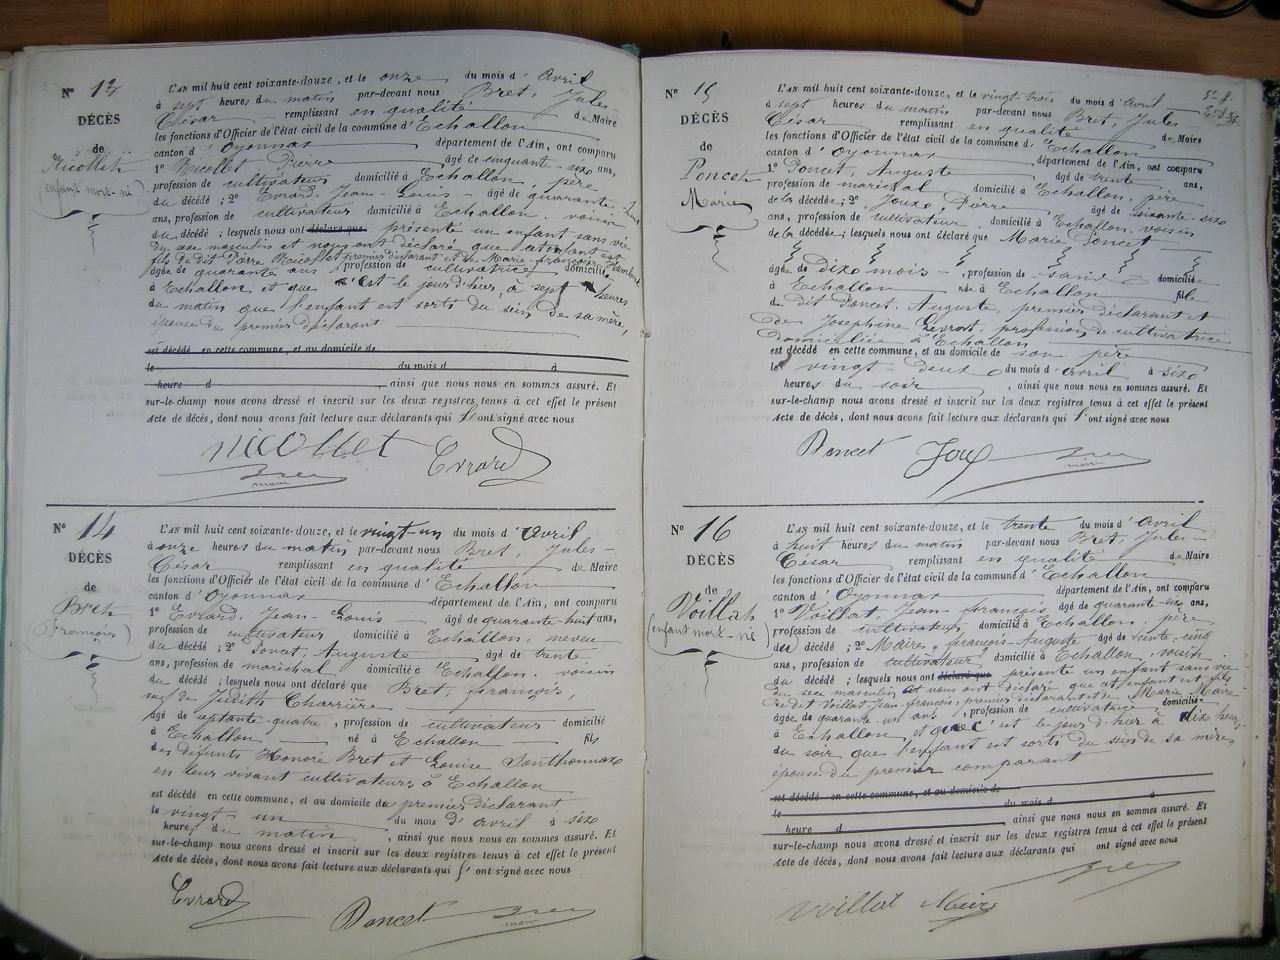 N° 13
DÉCÈS
de
Nicollet
(enfant mort-né)
L'AN mil huit cent soixante-douze, et le onze du mois d'Avril
à sept heures du matin par-devant nous Bret, Jules
César remplissant en qualité de Maire
les fonctions d'Officier de l'état civil de la commune d'Echallon
canton d'Oyonnax département de l'Ain, ont comparu
1° Nicollet Pierre âgé de cinquante-six ans,
profession de cultivateur domicilié à Echallon, père
du décédé; 2° Evrard, Jean-Louis âgé de quarante-
ans, profession de cultivateur domicilié à Echallon, voisin
du décédé; lesquels nous ont déclaré que présenté un enfant sans vie
du sexe masculin et nous ont déclaré que cet enfant est
fils de dit Pierre Nicollet premier déclarant et de Marie-françoise
âgée de quarante ans, profession de cultivatrice domiciliée
à Echallon et que c'est le jour d'hier, à sept heures
du matin que l'enfant est sorti du sein de sa mère,
épouse du premier déclarant
est décédé en cette commune, et au domicile de
le du mois d à
heure d , ainsi que nous nous en sommes assuré. Et
sur-le-champ nous avons dressé et inscrit sur les deux registres tenus à cet effet le présent
acte de décès, dont nous avons fait lecture aux déclarants qui l'ont signé avec nous
Nicollet Evrard
Bret
maire
N° 14
DÉCÈS
de
Bret
(François)
L'AN mil huit cent soixante-douze, et le vingt-un du mois d'Avril
à onze heures du matin par-devant nous Bret, Jules-
César remplissant en qualité de Maire
les fonctions d'Officier de l'état civil de la commune d'Echallon
canton d'Oyonnax département de l'Ain, ont comparu
1° Evrard, Jean-Louis âgé de quarante-huit ans,
profession de cultivateur domicilié à Echallon, neveu
du décédé; 2° Poncet, Auguste âgé de trente
ans, profession de maréchal domicilié à Echallon, voisin
du décédé; lesquels nous ont déclaré que Bret, françois,
veuf de Judith Charrière
âgé de septante-quatre, profession de cultivateur domicilié
à Echallon né à Echallon fils
des défunts Honoré Bret et Louise Santhonnax
en leur vivant cultivateurs à Echallon
est décédé en cette commune, et au domicile du premier déclarant
le vingt-un du mois d'avril à six
heures du matin, ainsi que nous nous en sommes assuré. Et
sur-le-champ nous avons dressé et inscrit sur les deux registres tenus à cet effet le présent
acte de décès, dont nous avons fait lecture aux déclarants qui l'ont signé avec nous
Evrard
Poncet Bret
maire
N° 15
DÉCÈS
de
Poncet
Marie
L'AN mil huit cent soixante-douze, et le vingt-trois du mois d'Avril
à sept heures du matin par-devant nous Bret, Jules
César remplissant en qualité de Maire
les fonctions d'Officier de l'état civil de la commune d'Echallon
canton d'Oyonnax département de l'Ain, ont comparu
1° Poncet, Auguste âgé de trente ans,
profession de maréchal domicilié à Echallon, père
de la décédée; 2° Joux, Pierre âgé de soixante-six
ans, profession de cultivateur domicilié à Echallon, voisin
de la décédée; lesquels nous ont déclaré que Marie Poncet
âgée de dix mois, profession de sans domiciliée
à Echallon née à Echallon fille
de dit Poncet, Auguste, premier déclarant et
de Josephine Levrat, profession de cultivatrice
domiciliée à Echallon
est décédé en cette commune, et au domicile de son père
le vingt-deux du mois d'avril à six
heures du soir, ainsi que nous nous en sommes assuré. Et
sur-le-champ nous avons dressé et inscrit sur les deux registres tenus à cet effet le présent
acte de décès, dont nous avons fait lecture aux déclarants qui l'ont signé avec nous
Poncet Joux Bret
maire
N° 16
DÉCÈS
de
Voillat
(enfant mort-né)
L'AN mil huit cent soixante-douze, et le trente du mois d'Avril
à huit heures du matin par-devant nous Bret, Jules-
César remplissant en qualité de Maire
les fonctions d'Officier de l'état civil de la commune d'Echallon
canton d'Oyonnax département de l'Ain, ont comparu
1° Voillat, Jean-françois âgé de quarante-six ans,
profession de cultivateur domicilié à Echallon, père
du décédé; 2° Maire, françois-Auguste âgé de trente-cinq
ans, profession de cultivateur domicilié à Echallon, voisin
du décédé; lesquels nous ont déclaré que présenté un enfant sans vie
du sexe masculin et nous ont déclaré que cet enfant est fils
de dit Voillat Jean-françois, premier déclarant et de Marie Maire
âgée de quarante-un ans, profession de cultivatrice domiciliée
à Echallon, et que c'est le jour d'hier à dix heures
du soir, que l'enfant est sorti du sein de sa mère,
épouse du premier comparant
est décédé en cette commune, et au domicile de
le du mois d à
heure d , ainsi que nous nous en sommes assuré. Et
sur-le-champ nous avons dressé et inscrit sur les deux registres tenus à cet effet le présent
acte de décès, dont nous avons fait lecture aux déclarants qui ont signé avec nous
Bret
Voillat Maire